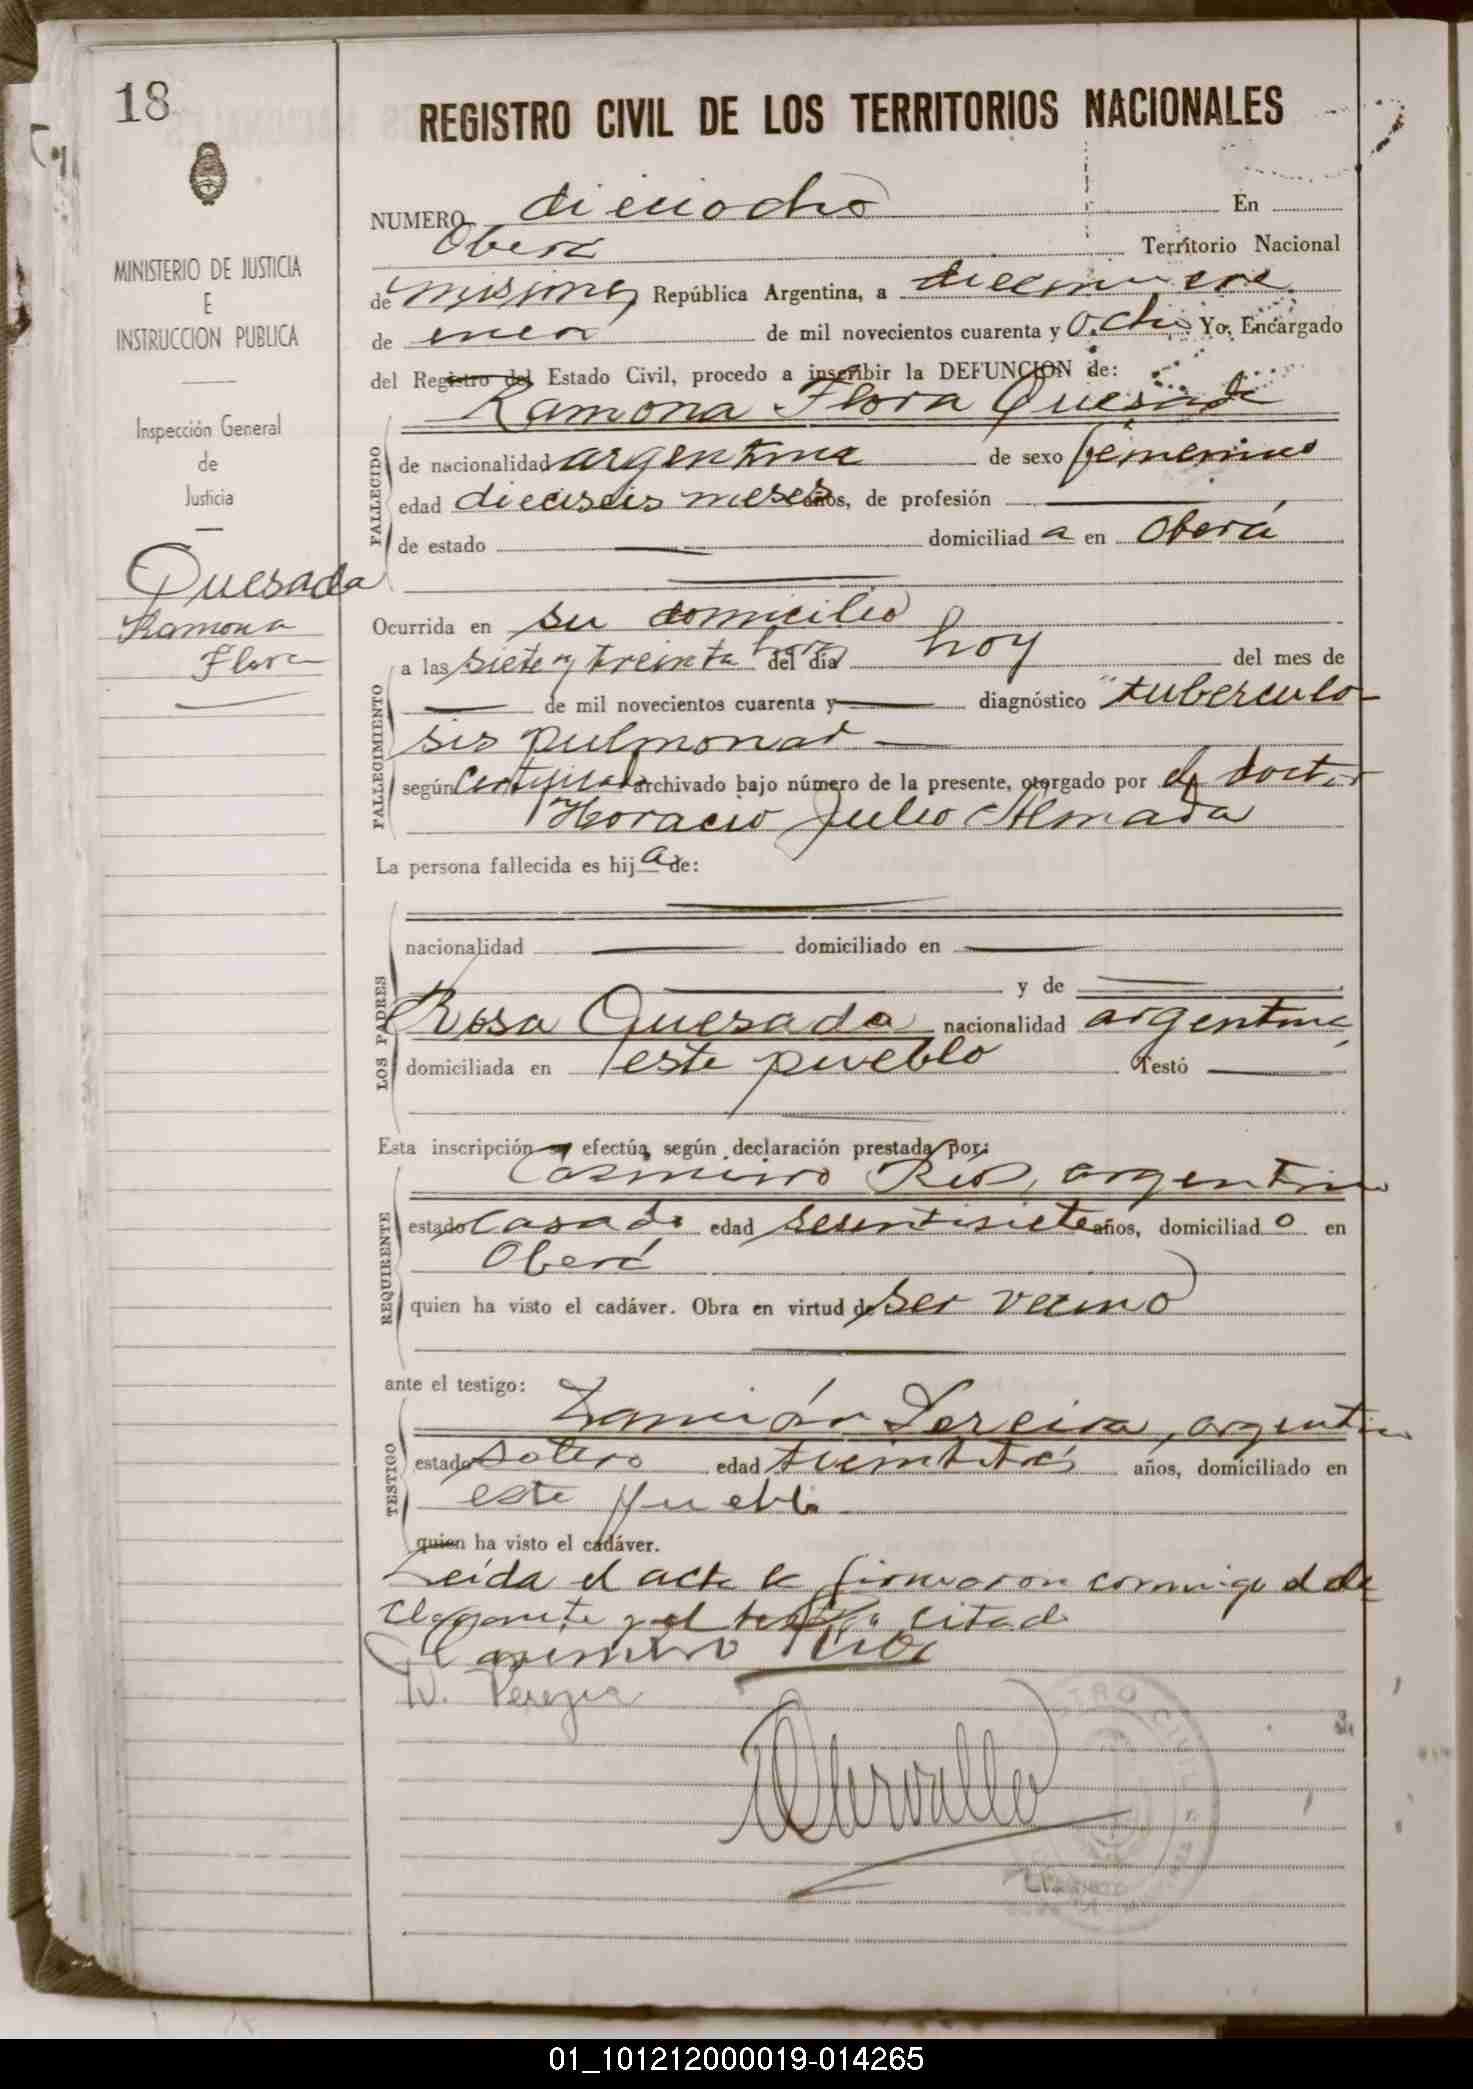 18
REGISTRO CIVIL DE LOS TERRITORIOS NACIONALES
MINISTERIO DE JUSTICIA
E
INSTRUCCION PUBLICA
Inspección General
de
Justicia
Quesada
Ramona
Flora
NUMERO dieciocho En
Oberá Territorio Nacional
de Misiones República Argentina, a diecinueve
de enero de mil novecientos cuarenta y ocho Yo, Encargado
del Registro del Estado Civil, procedo a inscribir la DEFUNCION de:
Ramona Flora Quesada
FALLECIDO
de nacionalidad argentina de sexo femenino
edad dieciseis meses años, de profesión
de estado domiciliad a en Oberá
Ocurrida en su domicilio
FALLECIMIENTO
a las siete y treinta horas del día hoy del mes de
de mil novecientos cuarenta y diagnóstico tuberculo-
sis pulmonar
según Certificado archivado bajo número de la presente, otorgado por el doctor
Horacio Julio Almada
La persona fallecida es hij a de:
LOS PADRES
nacionalidad domiciliado en
y de
Rosa Quesada nacionalidad argentina
domiciliada en este pueblo Testó
Esta inscripción se efectúa según declaración prestada por:
Casimiro Ríos, argentino
REQUIRENTE
estado casado edad sesentisiete años, domiciliad o en
Oberá
quien ha visto el cadáver. Obra en virtud de ser vecino
ante el testigo:
Pereira, argentino
TESTIGO
estado soltero edad treintitrés años, domiciliado en
este pueblo
quien ha visto el cadáver.
Leída el acta la firmaron conmigo el de-
clarante y el testigo citado
Casimiro Rios
REGISTRO CIVIL
01_101212000019-014265